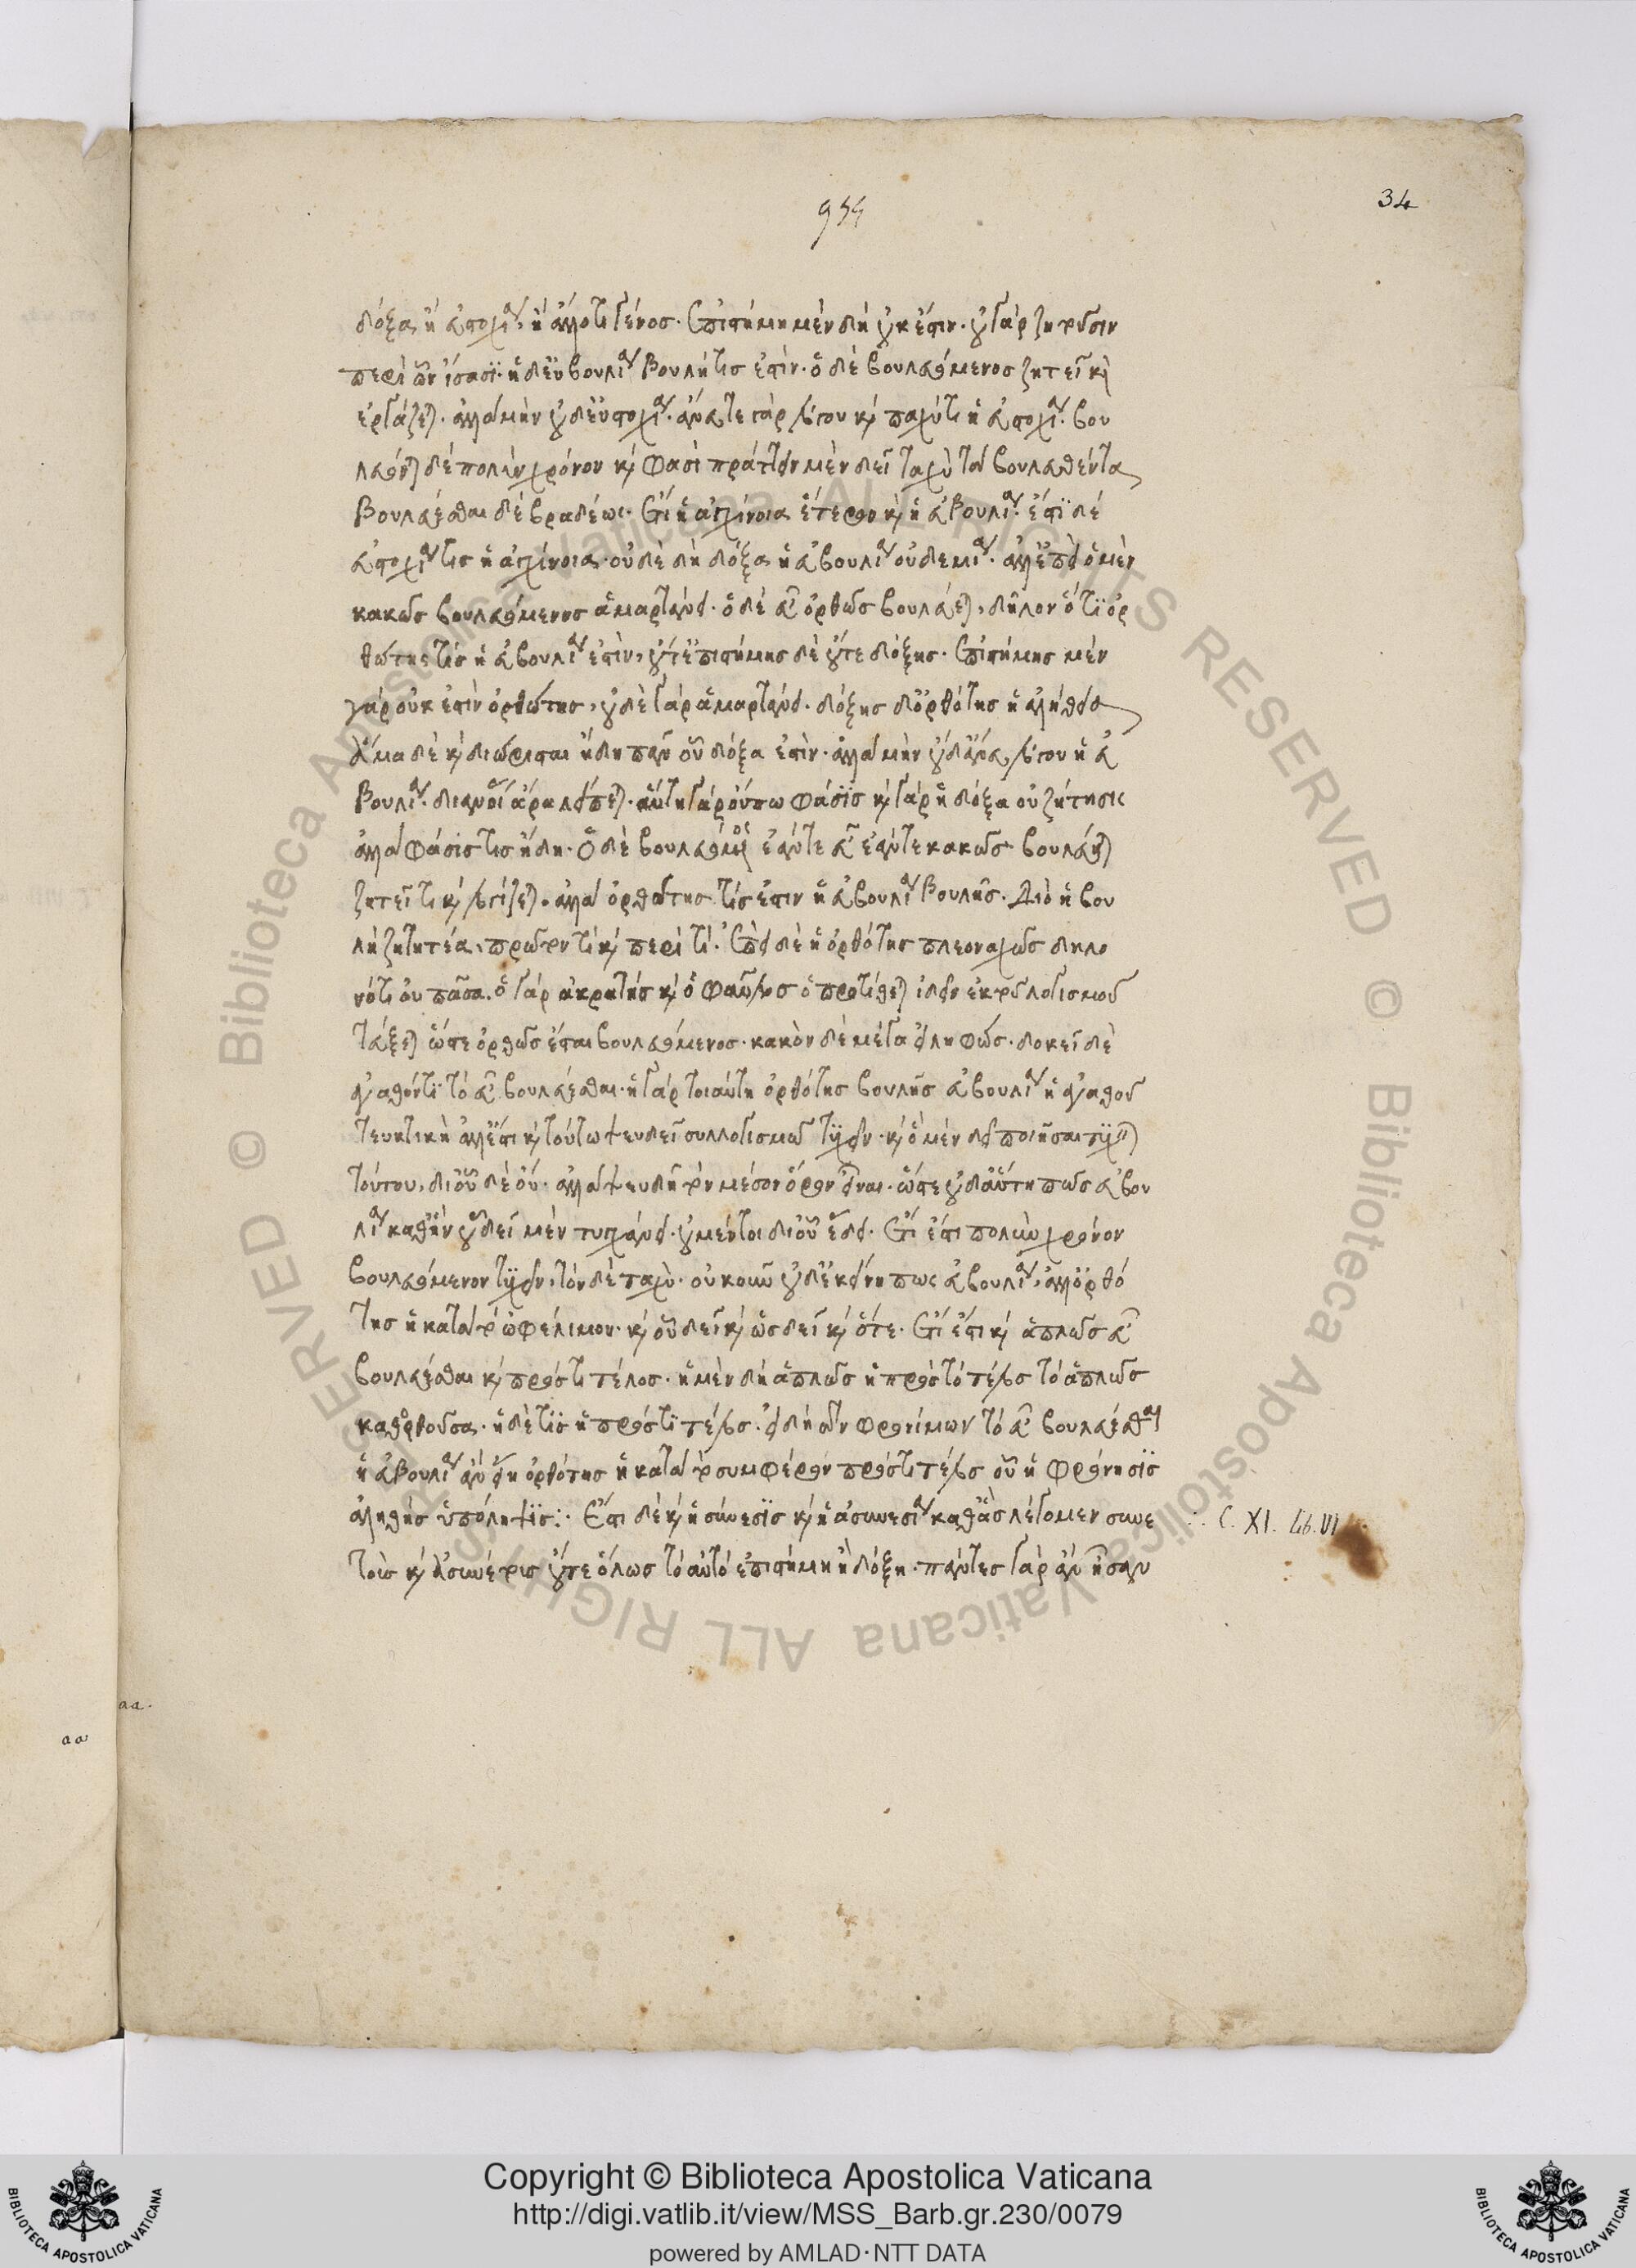 34
δόξα ἢ εὐστοχία, ἢ ἄλλό τι γένος. Ἐπιστήμη μὲν δὴ οὐκ ἔστιν. οὐ γὰρ ζητοῦσιν
περὶ ὧν ἴσασιν. ἡ δ' εὐβουλία βουλή τις ἐστίν. ὁ δὲ βουλευόμενος ζητεῖ καὶ
λογίζεται. ἀλλὰ μὴν οὐδ' εὐστοχία. ἄνευ τε γὰρ λόγου καὶ ταχύ τι ἡ εὐστοχία. βου
λεύονται δὲ πολὺν χρόνον καὶ φασὶ πράττειν μὲν δεῖν ταχὺ τὰ βουλευθέντα
βουλεύεσθαι δὲ βραδέως. Ἔτι ἡ ἀγχίνοια ἕτερον καὶ ἡ εὐβουλία. ἔστι δὲ
εὐστοχία τις ἡ ἀγχίνοια. οὐδὲ δὴ δόξα ἡ εὐβουλία οὐδεμία. ἀλλ' ἐπεὶ ὁ μὲν
κακῶς βουλευόμενος ἁμαρτάνει. ὁ δὲ εὖ ὀρθῶς βουλεύεται, δῆλον ὅτι ὀρ
θότης τις ἡ εὐβουλία ἐστίν, οὔτ' ἐπιστήμης δὲ οὔτε δόξης. Ἐπιστήμης μὲν
γὰρ οὐκ ἔστιν ὀρθότης, οὐδὲ γὰρ ἁμαρτάνει. δόξης δ' ὀρθότης ἡ ἀλήθεια
ἅμα δὲ καὶ διώρισται ἤδη πᾶν οὗ δόξα ἐστίν. ἀλλὰ μὴν οὐδ' ἄνευ λόγου ἡ εὐ
βουλία. διανοίας ἄρα λείπεται. αὕτη γὰρ οὔπω φάσις καὶ γὰρ ἡ δόξα οὐ ζήτησις
ἀλλὰ φάσις τις ἤδη. Ὁ δὲ βουλευόμενος ἐάν τε εὖ ἐάν τε κακῶς βουλεύηται
ζητεῖ τι καὶ λογίζεται. ἀλλὰ ὀρθότης τίς ἐστιν ἡ εὐβουλία βουλῆς. Διὸ ἡ βου
λὴ ζητητέα, πρῶτον τί καὶ περὶ τί. Ἐπεὶ δὲ ἡ ὀρθότης πλεοναχῶς δηλο
νότι οὐ πᾶσα. ὁ γὰρ ἀκρατὴς καὶ ὁ φαῦλος ὃ προτίθεται ἰδεῖν ἐκ τοῦ λογισμοῦ
τεύξεται ὥστε ὀρθῶς ἔσται βουλευόμενος. κακὸν δὲ μέγα εἰληφώς. δοκεῖ δὲ
ἀγαθόν τι τὸ εὖ βουλεύεσθαι. ἡ γὰρ τοιαύτη ὀρθότης βουλῆς εὐβουλία ἡ ἀγαθοῦ
τευκτικὴ ἀλλ' ἔστι καὶ τούτῳ ψευδεῖ συλλογισμῷ τυχεῖν. καὶ ὃ μὲν δεῖ ποιῆσαι τυχεῖν
τούτου, δι' οὗ δὲ οὔ. ἀλλὰ ψευδῆ τὸν μέσον ὅρον εἶναι. ὥστε οὐδ' αὕτη πως εὐβου
λία καθ' ἣν οὗ δεῖ μὲν τυγχάνει. οὐ μέντοι δι' οὗ ἔδει. Ἔτι ἔστι πολὺν χρόνον
βουλευόμενον τυχεῖν, τὸν δὲ ταχύ. οὐκοῦν οὐδ' ἐκείνη πως εὐβουλία, ἀλλ' ὀρθό
της ἡ κατὰ τὸ ὠφέλιμον. καὶ οὗ δεῖ καὶ ὡς δεῖ καὶ ὅτε. Ἔτι ἔστι καὶ ἁπλῶς εὖ
βουλεύεσθαι καὶ πρός τι τέλος. ἡ μὲν δὴ ἁπλῶς ἡ πρὸς τὸ τέλος τὸ ἁπλῶς
κατορθοῦσα. ἡ δέ τις ἡ πρός τι τέλος. εἰ δὴ τῶν φρονίμων τὸ εὖ βουλεύεσθαι
ἡ εὐβουλία ἂν εἴη ὀρθότης ἡ κατὰ τὸ συμφέρον πρός τι τέλος οὗ ἡ φρόνησις
ἀληθὴς ὑπόληψις: Ἔστι δὲ καὶ ἡ σύνεσις καὶ ἡ ἀσυνεσία καθ' ἃς λέγομεν συνε
τοὺς καὶ ἀσυνέτους οὔτε ὅλως τὸ αὐτὸ ἐπιστήμη ἢ δόξῃ. πάντες γὰρ ἂν ἦσαν
C. XI. Lib. VI
aa.
aa
Copyright © Biblioteca Apostolica Vaticana
http://digi.vatlib.it/view/MSS_Barb.gr.230/0079
powered by AMLAD·NTT DATA